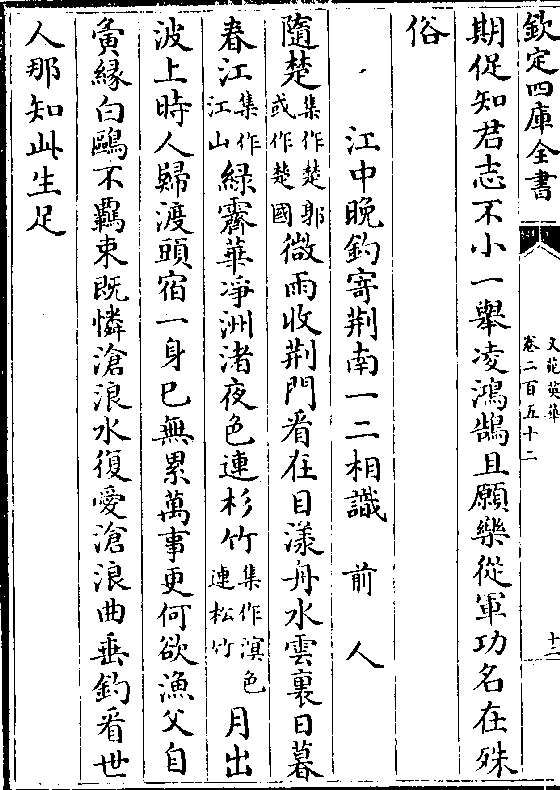 欽定四庫全書
文苑英華
卷二百五十二
十三
期促知君志不小一舉凌鴻鵠且願樂從軍功名在殊
俗
江中晚釣寄荆南一二相識　前人
隨楚集作楚郢或作楚國微雨收荆門看在目漾舟水雲裏日暮
春江集作江山綠霽華凈洲渚夜色連杉竹集作溟色連松竹月出
波上時人歸渡頭宿一身已無累萬事更何欲漁父自
夤緣白鷗不羈束既憐滄浪水復愛滄浪曲垂釣看世
人那知此生足